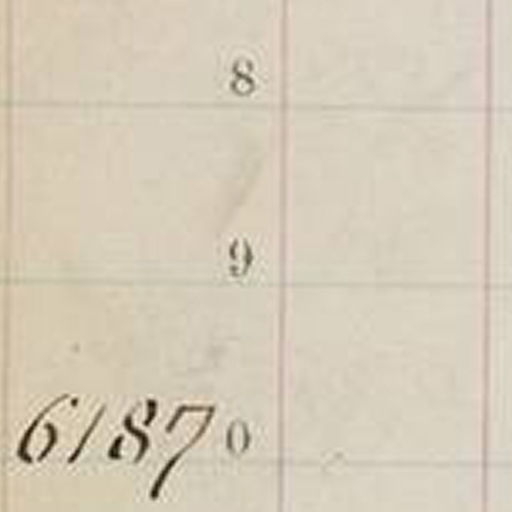 8
9
6187 0